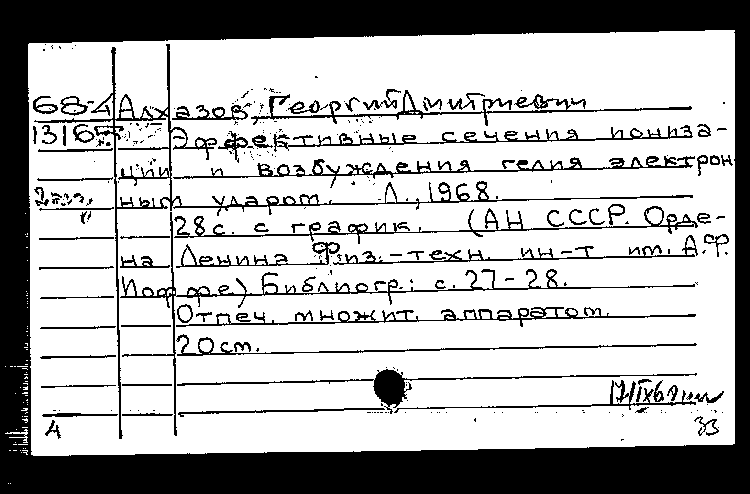 68-4 Алхазов, Георгий Дмитриевич
13165 Эффективные сечения иониза-
ции и возбуждения гелия электрон-
ным ударом. Л., 1968.
28 с. с график. (АН СССР. Орде-
на Ленина Физ.-техн. ин-т им. А.Ф.
Иоффе) Библиогр.: с. 27-28.
Отпеч. множит. аппаратом.
20 см.
4 33